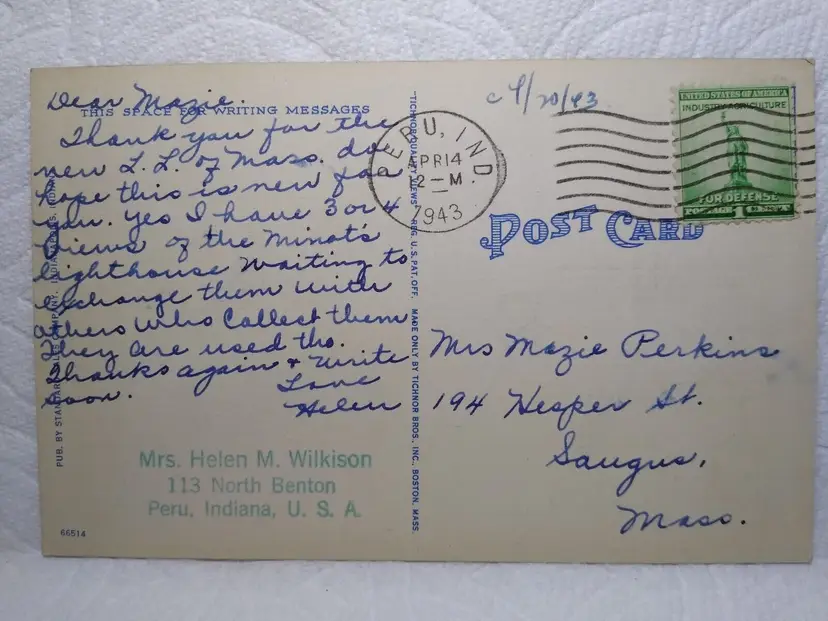 Dear Mazie.
THIS SPACE FOR WRITING MESSAGES
Thank you for the
new L.L. of Mass. do
hope this is new for
you. Yes I have 3 or 4
views of the Minot's
lighthouse waiting to
exchange them with
others who collect them
they are used tho.
Thanks again & write
soon.
Love
Helen
Mrs. Helen M. Wilkison
113 North Benton
Peru, Indiana, U. S. A.
66514
PUB. BY STANDARD COMPANY, INDIANAPOLIS,
"TICHNOR QUALITY VIEWS" REG. U. S. PAT. OFF. MADE ONLY BY TICHNOR BROS., INC., BOSTON, MASS.
4/20/43
PERU, IND.
APR 14
12 - M
1943
UNITED STATES OF AMERICA
INDUSTRY AGRICULTURE
FOR DEFENSE
POSTAGE 1 CENT
POST CARD
Mrs Mazie Perkins
194 Hesper St.
Saugus,
Mass.